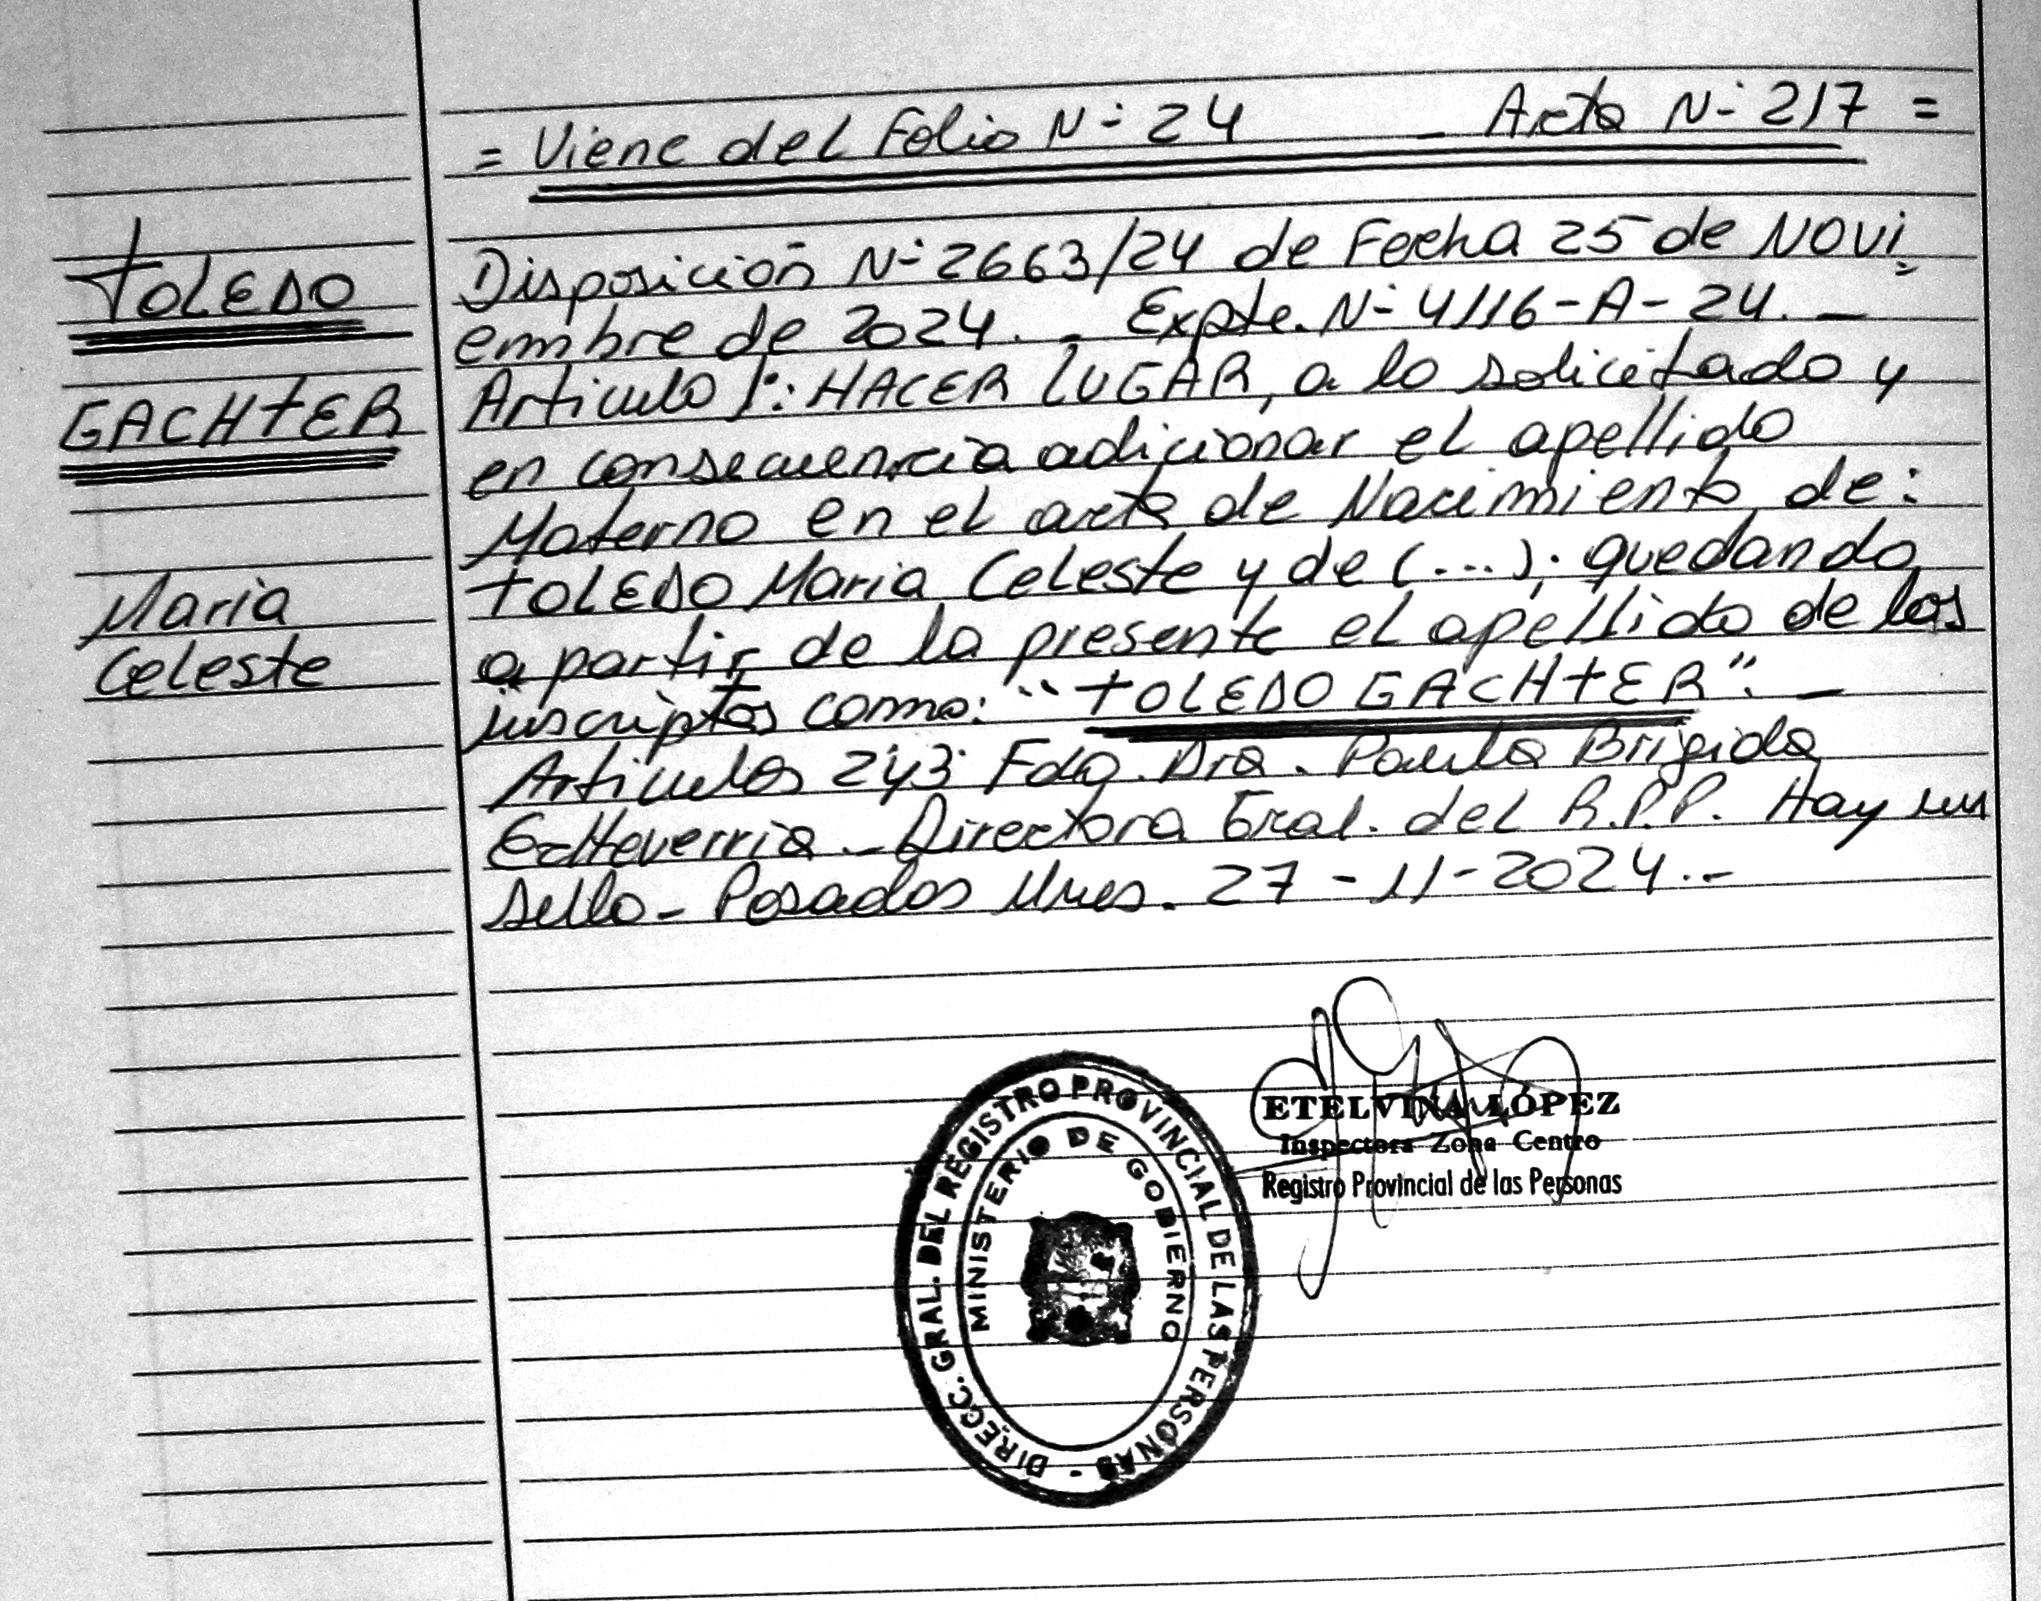 = Viene del Folio N- 24 - Acta N- 217 =
TOLEDO
GACHTER
Maria
Celeste
Disposición N- 2663/24 de Fecha 25 de NOVi-
embre de 2024. - Expte. N- 4116-A-24. -
Articulo 1°: HACER LUGAR, a lo solicitado y
en consecuencia adicionar el apellido
Materno en el acta de Nacimiento de:
TOLEDO Maria Celeste y de (...); quedando
a partir de la presente el apellido de los
inscriptos como: "TOLEDO GACHTER". -
Articulos 2y3 Fdo. Dra. Paula Brigida
Echeverria - Directora Gral. del R.P.P. Hay un
sello - Posadas Mnes. 27-11-2024.-
ETELVINA LÓPEZ
Inspectora Zona Centro
Registro Provincial de las Personas
DIRECC. GRAL. DEL REGISTRO PROVINCIAL DE LAS PERSONAS -
MINISTERIO DE GOBIERNO